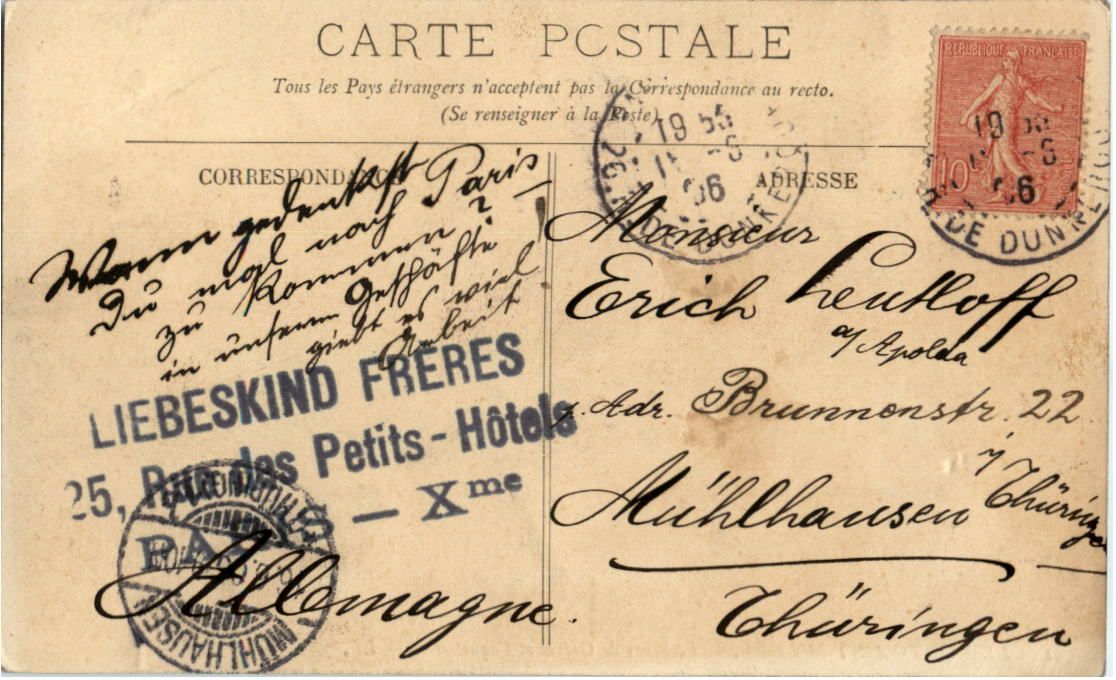 CARTE POSTALE
Tous les Pays étrangers n'acceptent pas la Correspondance au recto.
(Se renseigner à la Poste)
CORRESPONDANCE
ADRESSE
REPUBLIQUE FRANÇAISE
10
19 55
06
DE DUNKERQU
19
06
DE DUNKERQU
Wann gedenkst
Du mal nach Paris
zu kommen?
in unserm Geschäfte
giebt es viel
Arbeit!
LIEBESKIND FRÈRES
25, Rue des Petits-Hôtels
PARIS — Xme
MÜHLHAUSEN
(THÜRINGEN)
Monsieur
Erich Leutloff
a/ Apolda
p. Adr. Brunnenstr. 22
Mühlhausen i/ Thüringen
Thüringen
Allemagne.